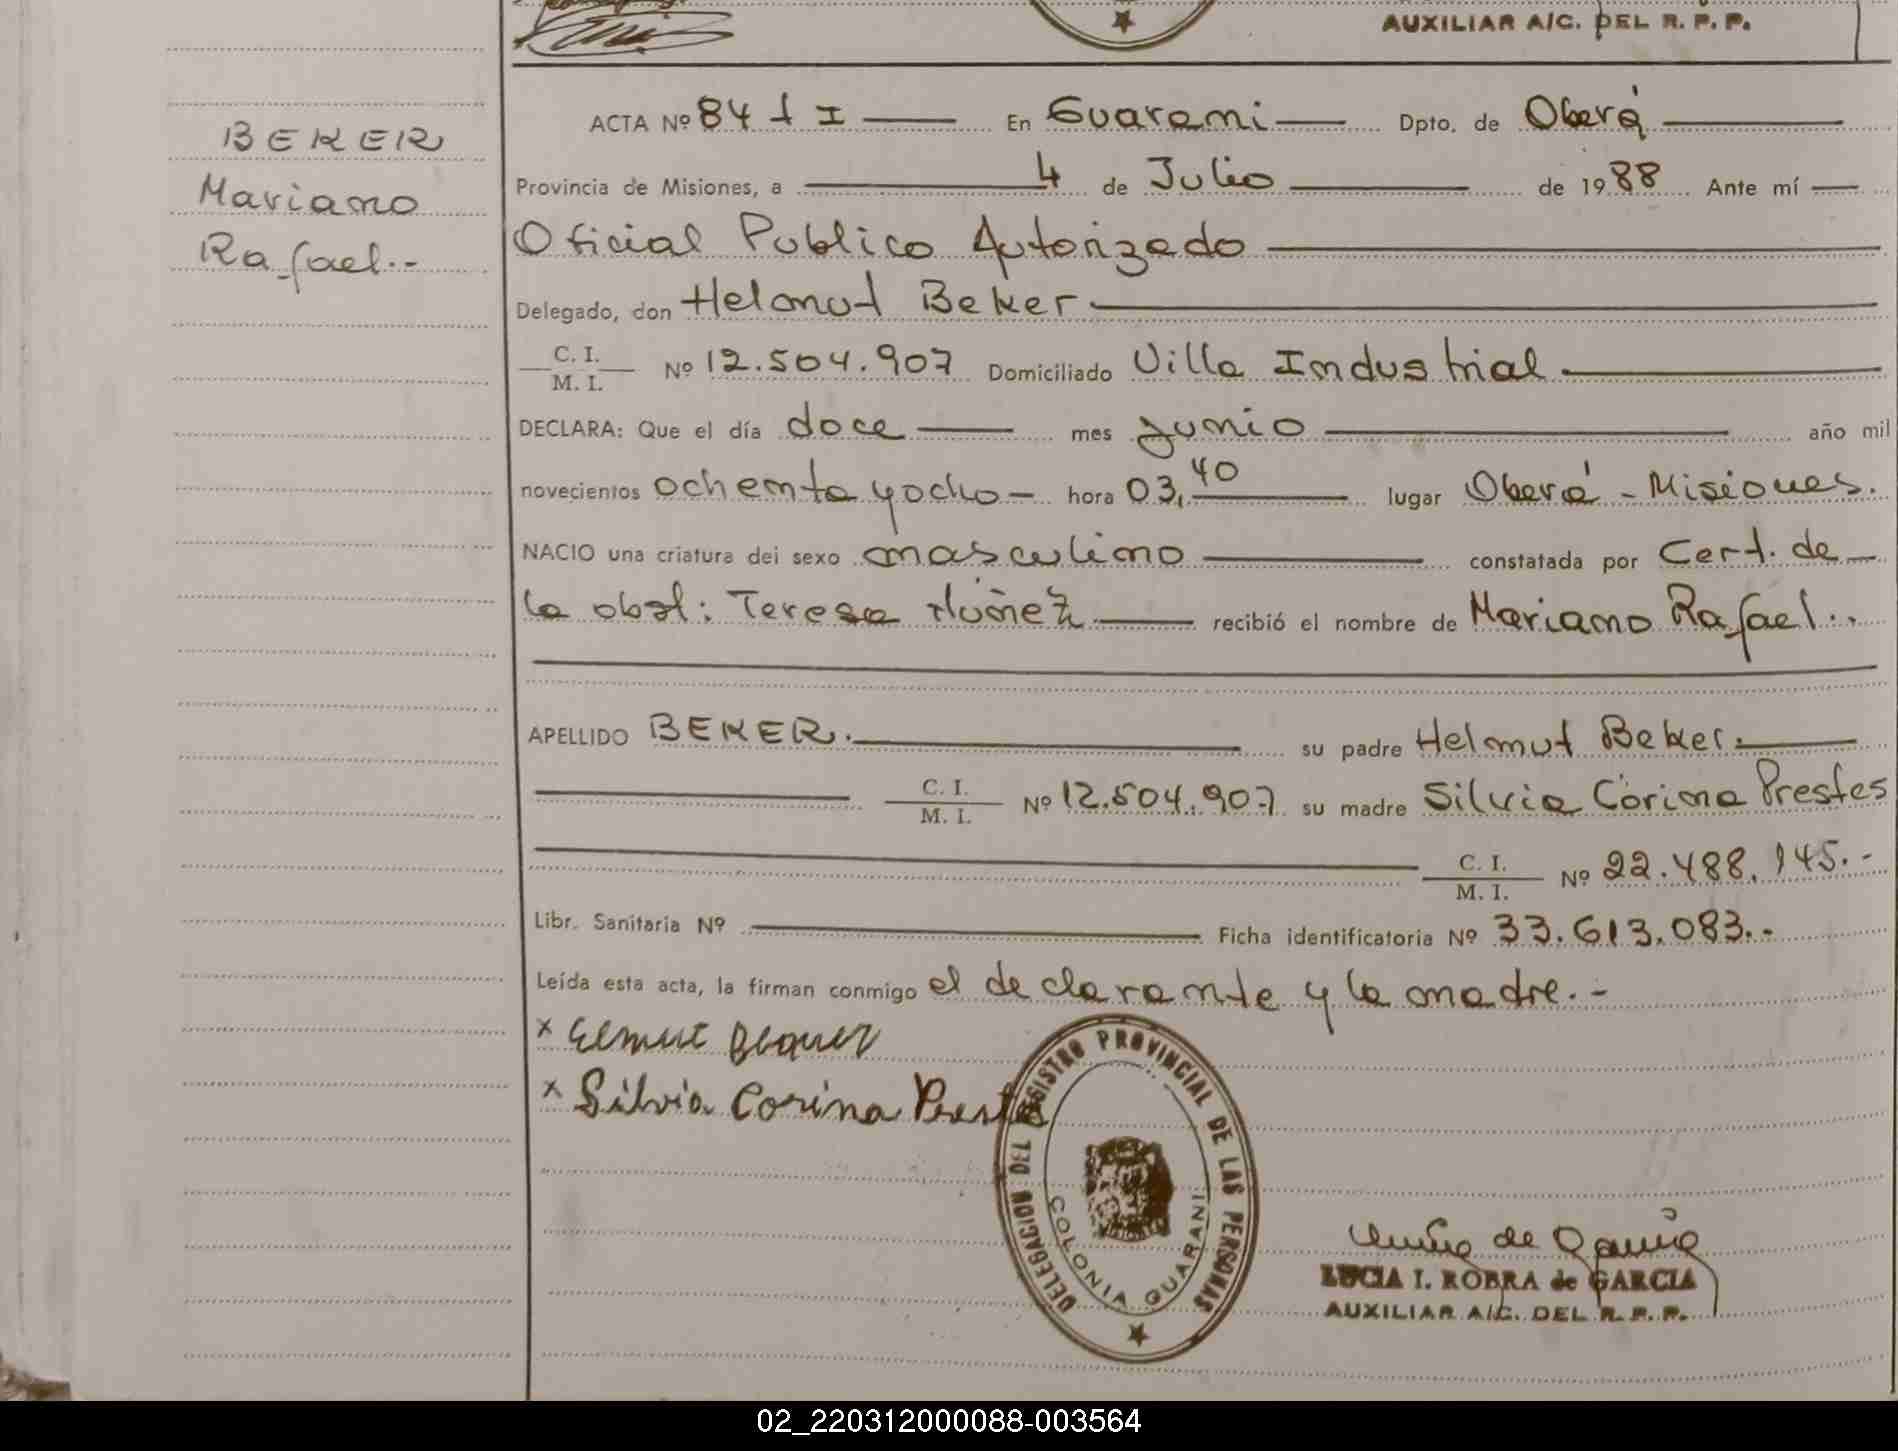 AUXILIAR A/C. DEL R. P. P.
BEKER
Mariano
Rafael.-
ACTA Nº 84 t I En Guarani Dpto. de Oberá
Provincia de Misiones, a 4 de Julio de 1988 Ante mí
Oficial Publico Autorizado
Delegado, don Helmut Beker
C. I.
M. I. Nº 12.504.907 Domiciliado Villa Industrial
DECLARA: Que el día doce mes junio año mil
novecientos ochenta y ocho - hora 03,40 lugar Oberá - Misiones.
NACIO una criatura del sexo masculino constatada por Cert. de
la obst: Teresa Núñez recibió el nombre de Mariano Rafael.-
APELLIDO BEKER. su padre Helmut Beker.
C. I.
M. I. Nº 12.504.907 su madre Silvia Corina Prestes
C. I.
M. I. Nº 22.488.145.-
Libr. Sanitaria Nº Ficha identificatoria Nº 33.613.083.-
Leída esta acta, la firman conmigo el declarante y la madre.-
x Elmut Bequer
x Silvia Corina Prestes
DELEGACION DEL REGISTRO PROVINCIAL DE LAS PERSONAS
COLONIA GUARANI
MISIONES
de Garcia
LUCIA I. ROBRA de GARCIA
AUXILIAR A/C. DEL R. P. P.
02_220312000088-003564